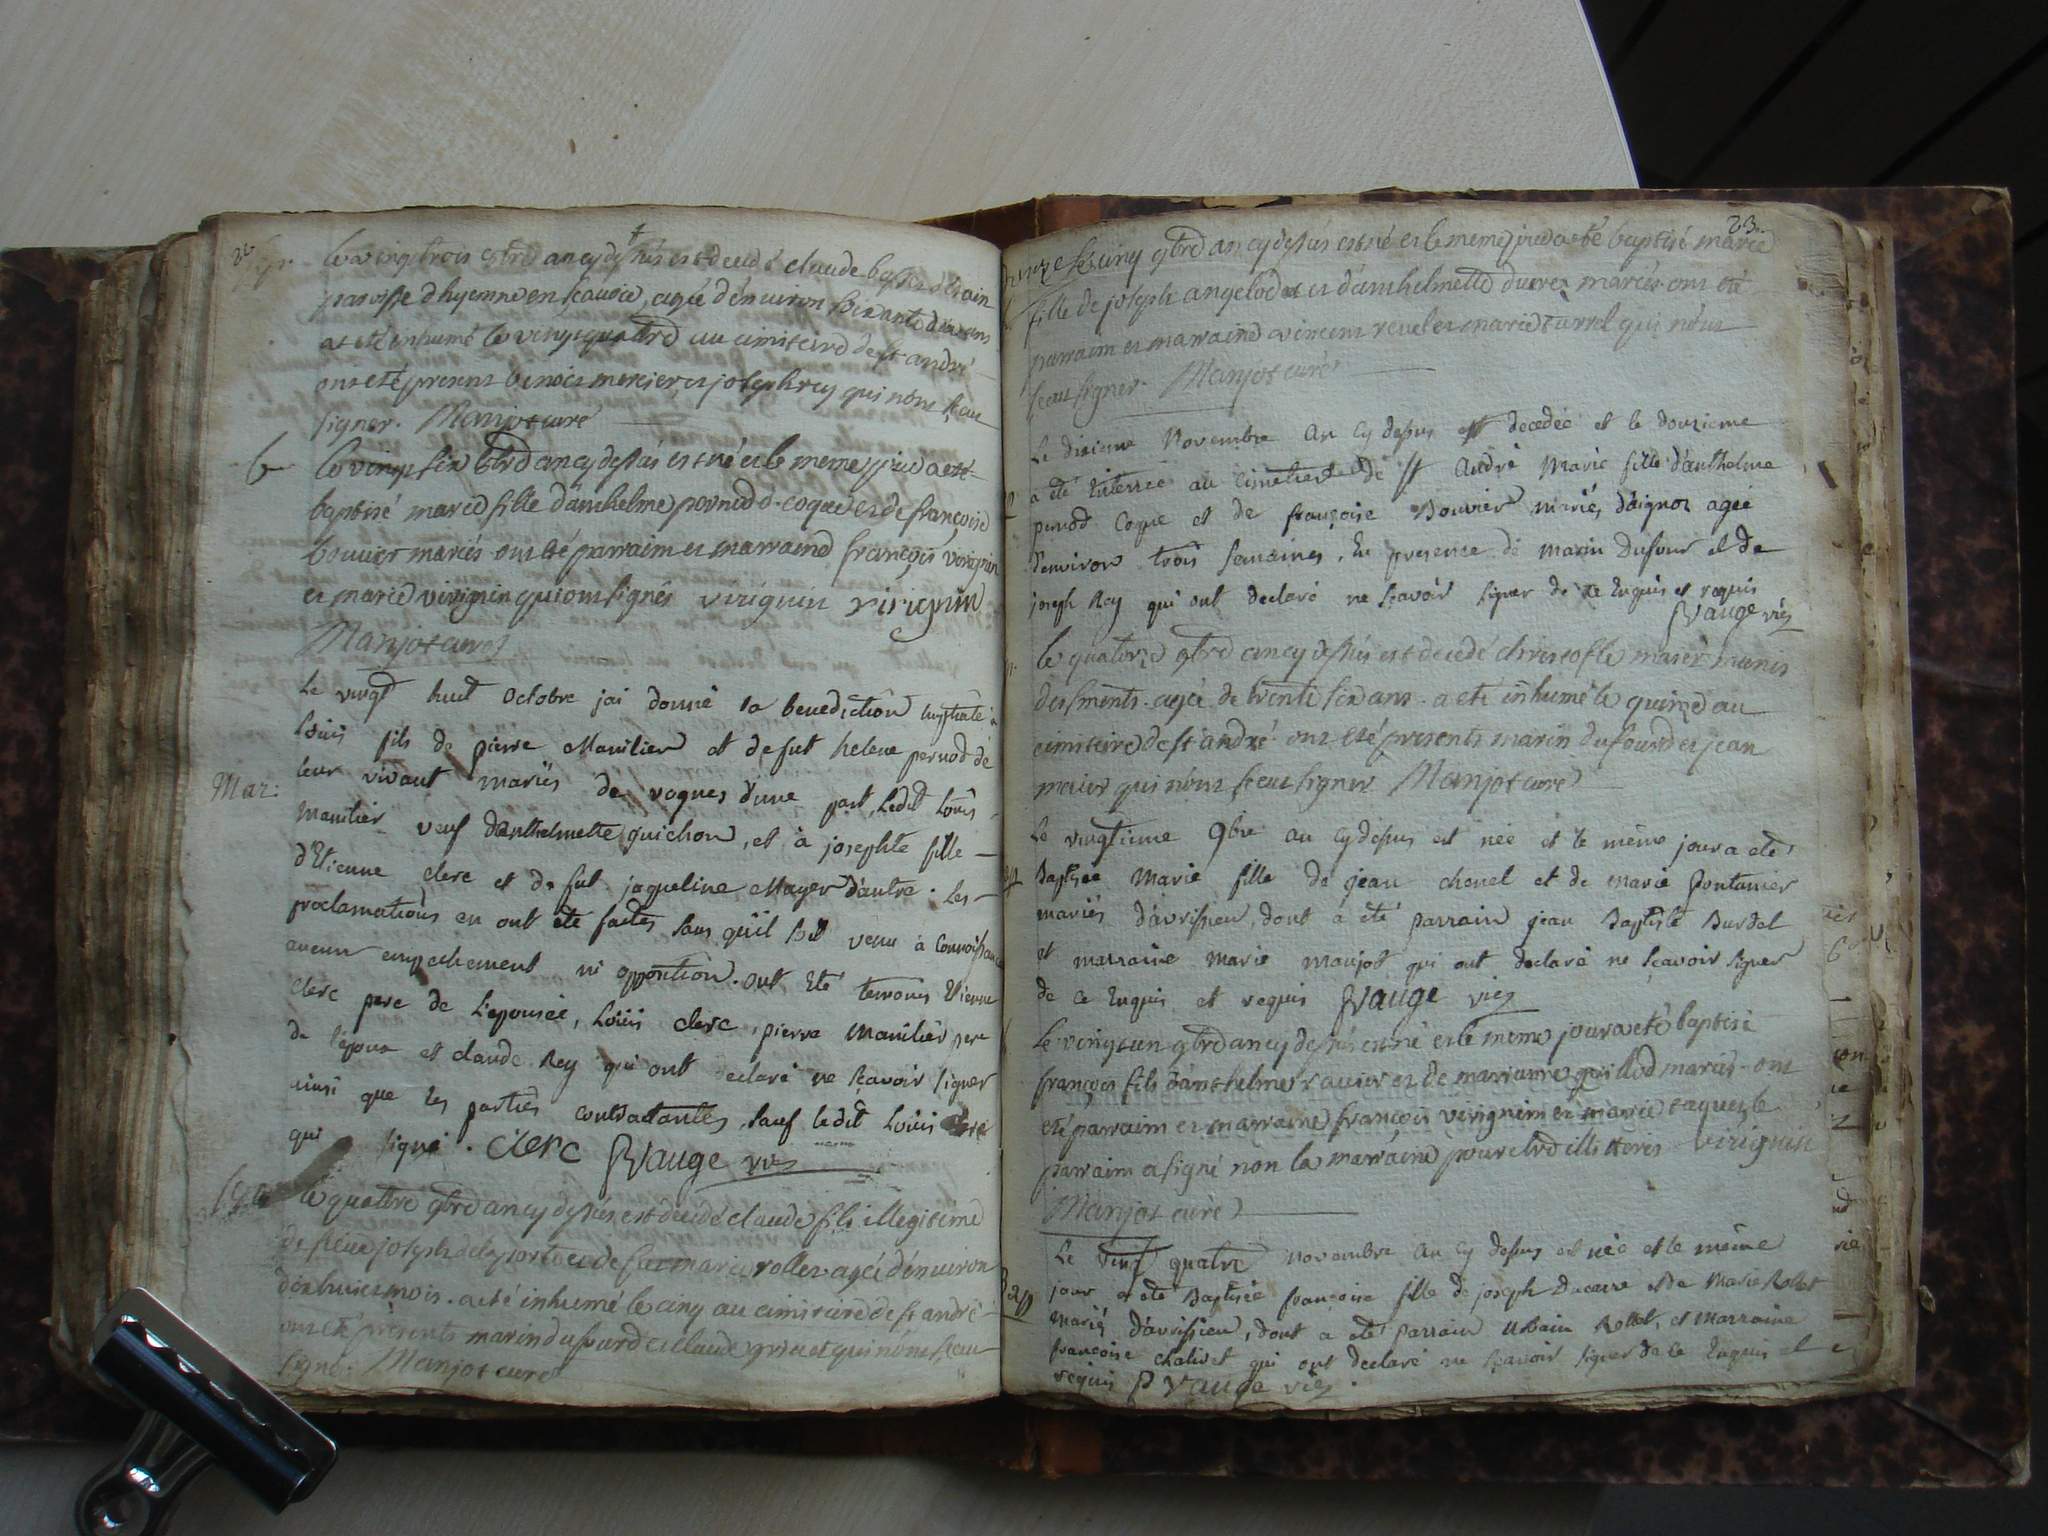 22
Le vingt trois 8bre an cy dessus est decedé claude
paroisse d'hyenne en savoie, agée d'environ soixante dix ans
at eté inhumé le vingt quattre au cimiteire de st andré
ont eté present benoit mercier et joseph rey qui n'ont sceau
signer. Manjot curé
b
Le vingt six 8bre an cy dessus est né et le meme jour a eté
baptisé marie fille d'anthelme pernod d. coque et de françoise
bouvier mariés ont eté parrain et marraine françois virignin
et marie virignin qui ont signés viriguin virignin
Manjot curé
Le vingt huit octobre jai donné la benediction nuptiale à
Louis fils de pierre Manilier et de fut helene pernod de
leur vivant mariés de vognes d'une part, Ledit Louis
Mar:
manilier veuf d'anthelmette guichon, et à josephte fille
d'Etienne clerc et de fut jaqueline Mayer d'autre. Les
proclamations en ont été faites sans qu'il soit venu à connoissance
aucun empechement ni opposition. ont Eté temoins Etienne
clerc pere de L'epousée, Louis clerc, pierre Manilier pere
de l'epoux et claude Rey qui ont declaré ne scavoir signer
ainsi que les parties contractantes, sauf ledit Louis clerc
qui a signé. clerc P Vauge vic
Le quattre 9bre an cy dessus est decedé claude fils illegitime
de sieur joseph delaporte et de feue marie rollet agée d'environ
dix huict mois. a eté inhumé le cinq au cimiteire de st andré
ont eté presents marin dufourd et claude qui n'ont sceau
signé. Manjot curé
23
Le cinq 9bre an cy dessus est né et le meme jour a eté baptisé marie
fille de joseph angelod et d'anthelmette durez mariés ont eté
parrain et marraine vincent revel et marie turrel qui n'ont
sceau signer. Manjot curé
Le dixieme Novembre an cy dessus est decedée et le douzieme
a été Enterrée au cimetiere de st André Marie fille d'anthelme
pernod Coque et de françoise Bouvier mariés d'aignoz agée
d'environ trois semaines, En presence de Marin Dufour et de
joseph Rey qui ont declaré ne scavoir signer de ce Enquis et requis
P Vauge vic
Le quatorze 9bre an cy dessus est decedé christofle maier munis
des sments. agée de trente six ans. a eté inhumé le quinze au
cimiteire de st andré ont eté presents marin dufourd et jean
maier qui n'ont sceau signer Manjot curé
Le vingtieme 9bre an cy dessus est née et le même jour a eté
Baptisée Marie fille de jean chenel et de Marie fontanier
mariés d'avrissieu, dont a été parrain jean Baptiste Burdet
et marraine Marie Manjot qui ont declaré ne scavoir signer
de ce Enquis et requis P Vauge vic
Le vingt un 9bre an cy dessus est né et le meme jour a eté baptisé
françois fils d'anthelme ravier et de marianne guillod mariés. ont
eté parrain et marraine françois virignin et marie taquet, le
parrain a signé non la marraine pour etre illitteré viriguin
Manjot curé
Le vingt quatre novembre an cy dessus est née et le même
Bap
jour a eté Baptisée françoise fille de joseph Ducarre et de Marie Rollet
mariés d'avrissieu, dont a eté parrain Urbain Rollet, et Marraine
françoise chalivet qui ont declaré ne scavoir signer de ce Enquis et
requis P Vauge vic.